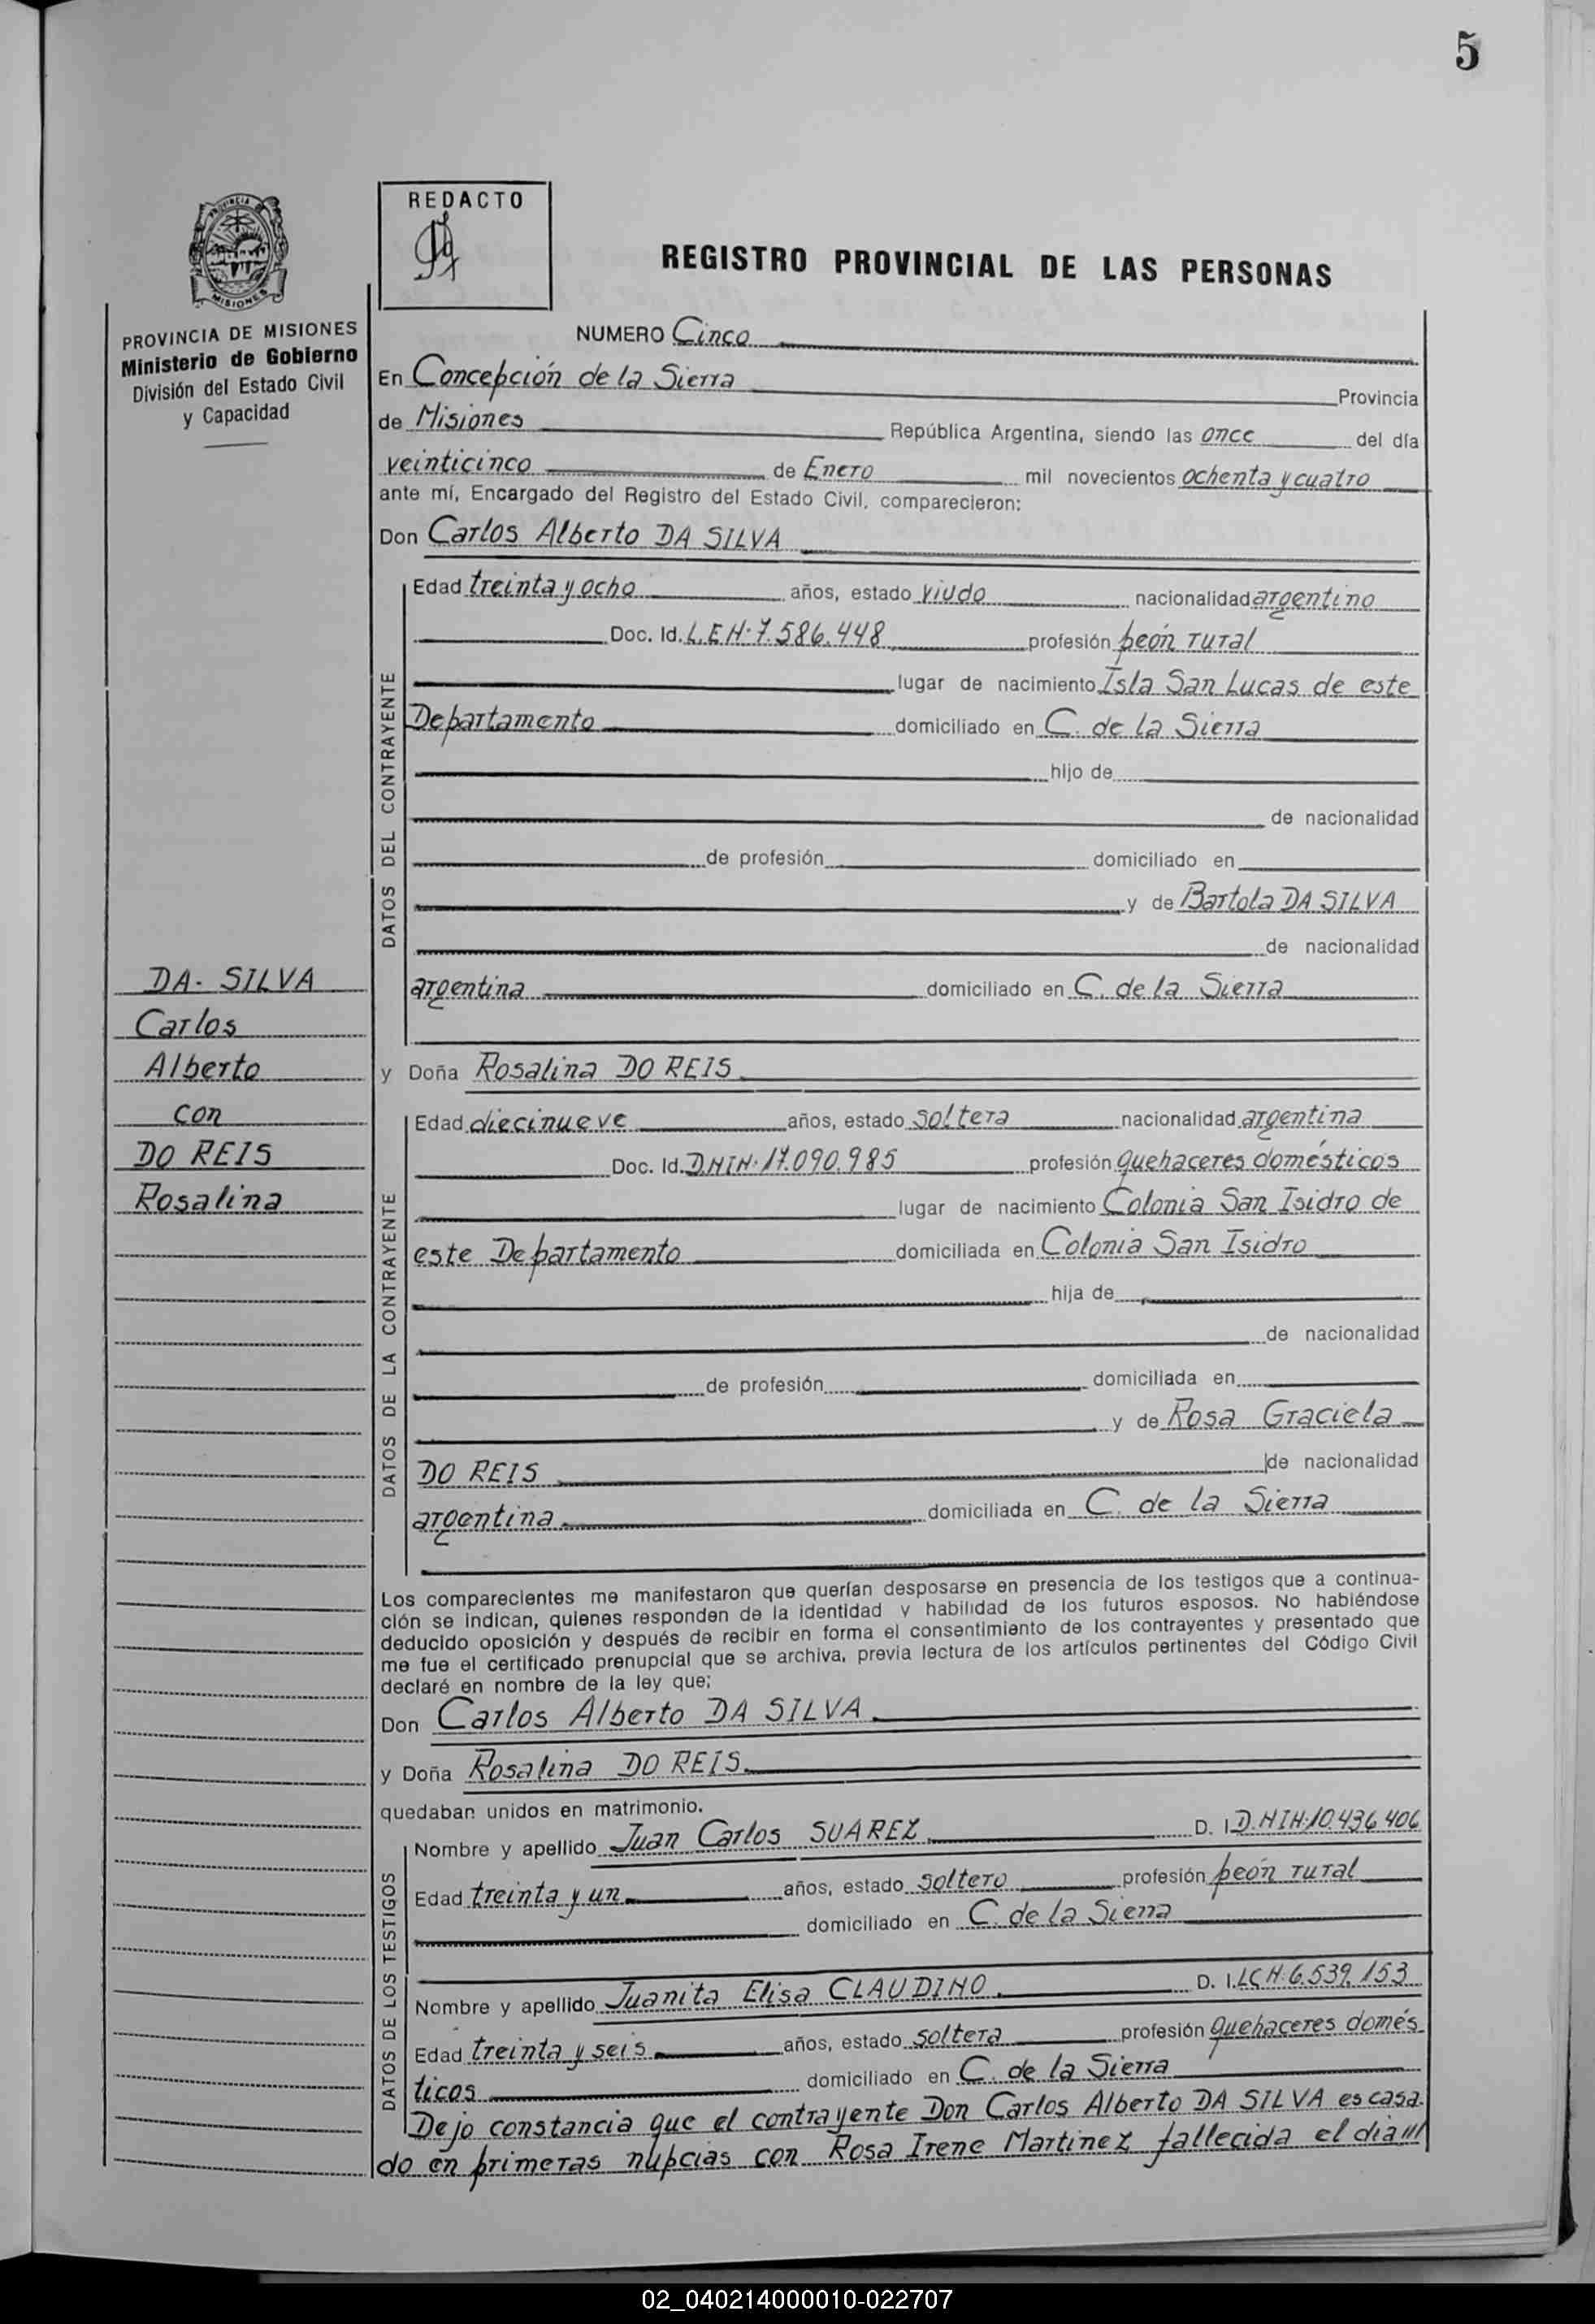 5
REDACTO
REGISTRO PROVINCIAL DE LAS PERSONAS
PROVINCIA
MISIONES
PROVINCIA DE MISIONES
Ministerio de Gobierno
División del Estado Civil
y Capacidad
NUMERO Cinco
En Concepción de la Sierra Provincia
de Misiones República Argentina, siendo las once del día
veinticinco de Enero mil novecientos ochenta y cuatro
ante mí, Encargado del Registro del Estado Civil, comparecieron:
Don Carlos Alberto DA SILVA
DATOS DEL CONTRAYENTE
Edad treinta y ocho años, estado viudo nacionalidad argentino
Doc. Id. L.E.Nº 7.586.448 profesión peón rural
lugar de nacimiento Isla San Lucas de este
Departamento domiciliado en C. de la Sierra
hijo de
de nacionalidad
de profesión domiciliado en
y de Bartola DA SILVA
de nacionalidad
argentina domiciliado en C. de la Sierra
DA- SILVA
Carlos
Alberto
con
DO REIS
Rosalina
y Doña Rosalina DO REIS.
DATOS DE LA CONTRAYENTE
Edad diecinueve años, estado soltera nacionalidad argentina
Doc. Id. D.N.I.Nº 17.090.985 profesión quehaceres domésticos
lugar de nacimiento Colonia San Isidro de
este Departamento domiciliada en Colonia San Isidro
hija de
de nacionalidad
de profesión domiciliada en
y de Rosa Graciela
DO REIS de nacionalidad
argentina. domiciliada en C. de la Sierra
Los comparecientes me manifestaron que querían desposarse en presencia de los testigos que a continua-
ción se indican, quienes responden de la identidad y habilidad de los futuros esposos. No habiéndose
deducido oposición y después de recibir en forma el consentimiento de los contrayentes y presentado que
me fue el certificado prenupcial que se archiva, previa lectura de los artículos pertinentes del Código Civil
declaré en nombre de la ley que:
Don Carlos Alberto DA SILVA.
y Doña Rosalina DO REIS.
quedaban unidos en matrimonio.
DATOS DE LOS TESTIGOS
Nombre y apellido Juan Carlos SUAREZ. D. I. D.N.I.Nº 10.436.406
Edad treinta y un años, estado soltero profesión peón rural
domiciliado en C. de la Sierra
Nombre y apellido Juanita Elisa CLAUDINO. D. I. L.C.Nº 6.539.153
Edad treinta y seis años, estado soltera profesión quehaceres domés
ticos domiciliado en C. de la Sierra
Dejo constancia que el contrayente Don Carlos Alberto DA SILVA es casa-
do en primeras nupcias con Rosa Irene Martinez fallecida el día
02_040214000010-022707